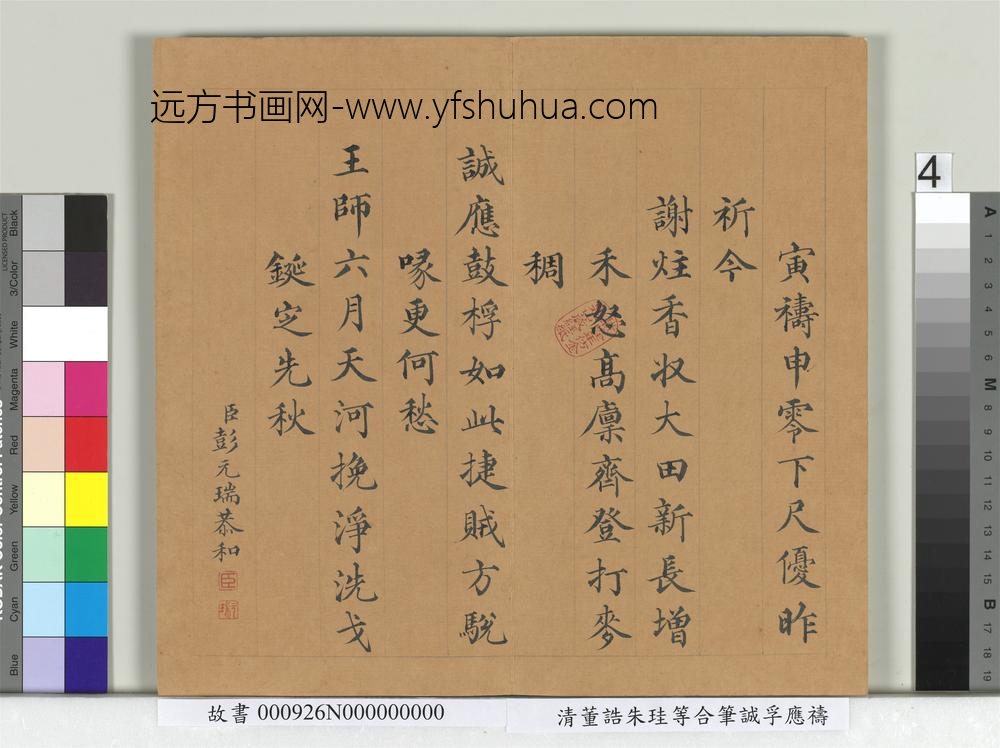 远方书画网-www.yfshuhua.com
寅禱申零下尺優昨
祈今
謝炷香収大田新長增
禾怒髙廪齊登打麥
稠
誠應鼓桴如此捷賊方駾
喙更何愁
王師六月天河挽淨洗戈
鋋㝎先秋
臣彭元瑞恭和
4
故書 000926N000000000
清董誥朱珪等合筆誠孚應禱
LICENSED PRODUCT
Black
3/Color
White
Magenta
Red
Yellow
Green
Cyan
Blue
A
1
2
3
4
5
6
M
8
9
10
11
12
13
14
15
B
17
18
19